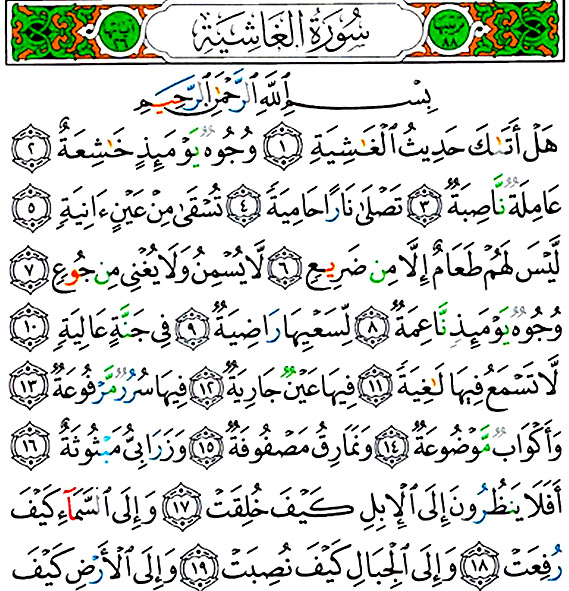 سُورَةُ الغَاشِيَةِ
بِسْمِ ٱللَّهِ ٱلرَّحْمَٰنِ ٱلرَّحِيمِ
هَلْ أَتَىٰكَ حَدِيثُ ٱلْغَٰشِيَةِ ١ وُجُوهٌ يَوْمَئِذٍ خَٰشِعَةٌ ٢
عَامِلَةٌ نَّاصِبَةٌ ٣ تَصْلَىٰ نَارًا حَامِيَةً ٤ تُسْقَىٰ مِنْ عَيْنٍ ءَانِيَةٍ ٥
لَّيْسَ لَهُمْ طَعَامٌ إِلَّا مِن ضَرِيعٍ ٦ لَّا يُسْمِنُ وَلَا يُغْنِى مِن جُوعٍ ٧
وُجُوهٌ يَوْمَئِذٍ نَّاعِمَةٌ ٨ لِّسَعْيِهَا رَاضِيَةٌ ٩ فِى جَنَّةٍ عَالِيَةٍ ١٠
لَّا تَسْمَعُ فِيهَا لَٰغِيَةً ١١ فِيهَا عَيْنٌ جَارِيَةٌ ١٢ فِيهَا سُرُرٌ مَّرْفُوعَةٌ ١٣
وَأَكْوَابٌ مَّوْضُوعَةٌ ١٤ وَنَمَارِقُ مَصْفُوفَةٌ ١٥ وَزَرَابِىُّ مَبْثُوثَةٌ ١٦
أَفَلَا يَنظُرُونَ إِلَى ٱلْإِبِلِ كَيْفَ خُلِقَتْ ١٧ وَإِلَى ٱلسَّمَآءِ كَيْفَ
رُفِعَتْ ١٨ وَإِلَى ٱلْجِبَالِ كَيْفَ نُصِبَتْ ١٩ وَإِلَى ٱلْأَرْضِ كَيْفَ